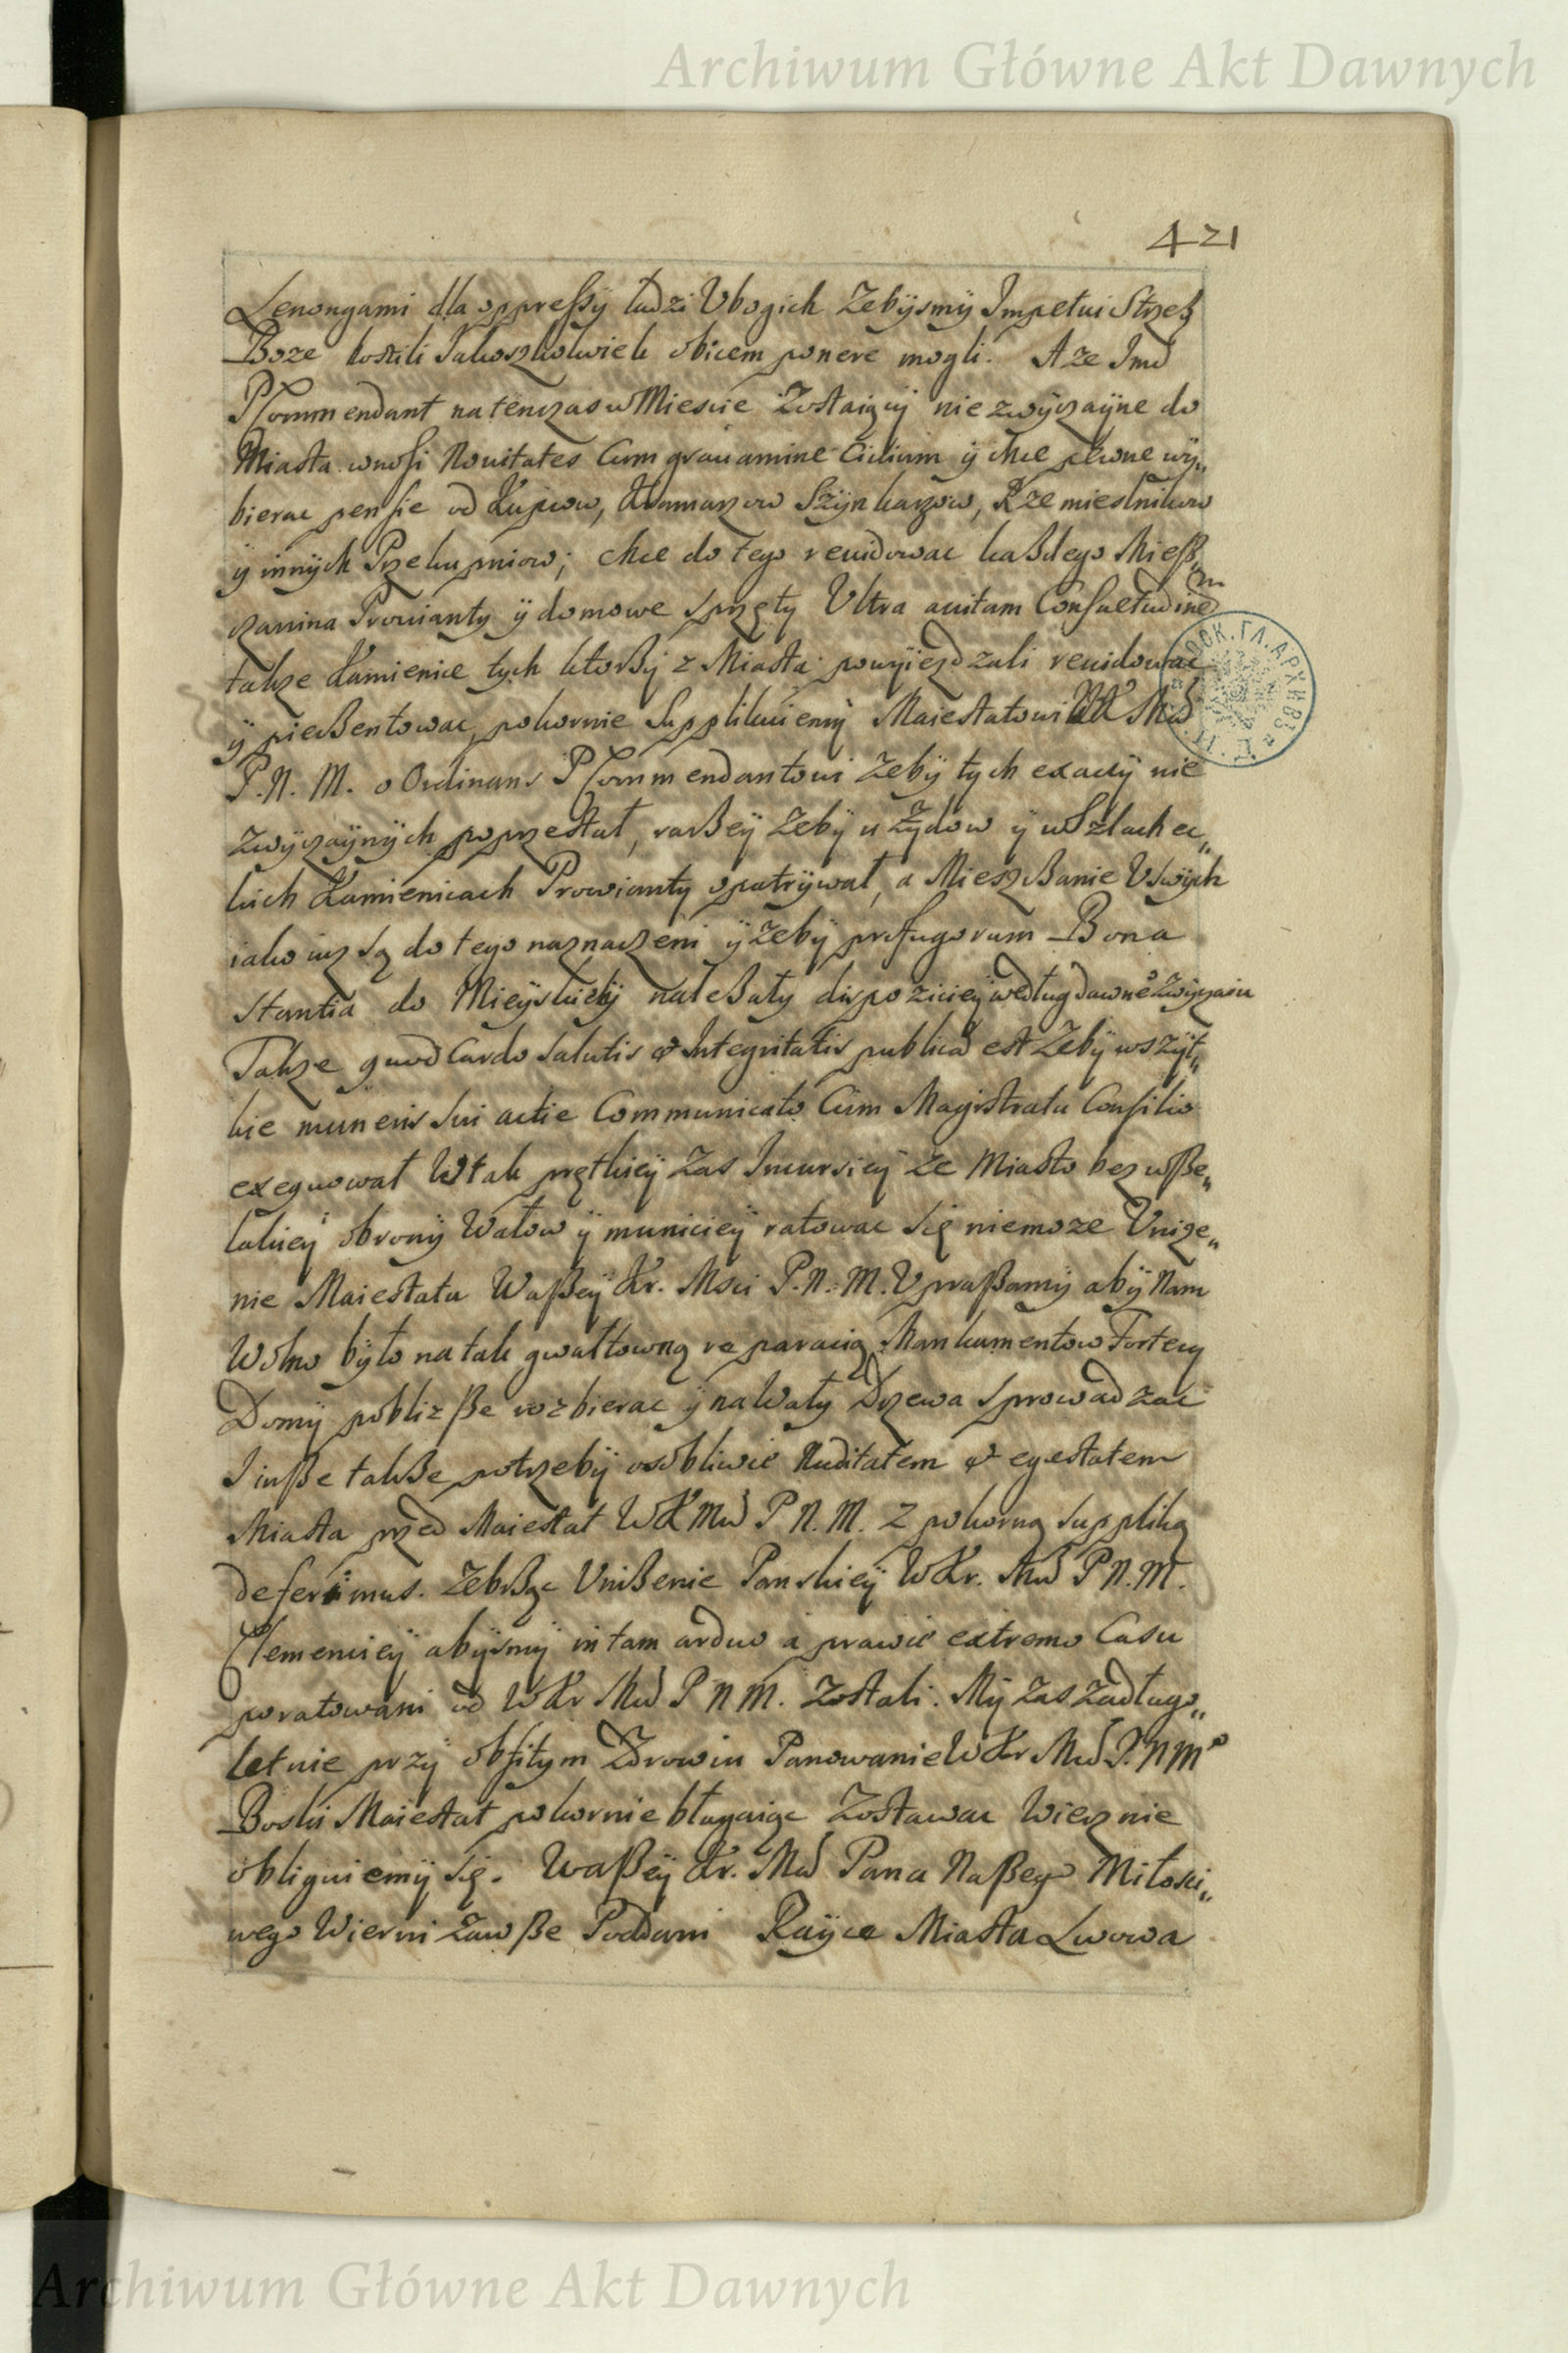 Archiwum Główne Akt Dawnych
421
Lenongami dla oppressÿ ludzi Vbogich Zebÿsmÿ Impetui Strzeż
Boze hostili Jakoszkolwiek obicem ponere mogli. A ze Jmć
P Commendant natenczas w Miescie Zostaiącÿ niezwÿczaÿne do
Miasta wnosi Nouitates Cum grauamine Ciuium ÿ chce pewne wÿ„
bierac pensie od Kupcow, Kramarzow Szÿnkarzow, Rzemieslnikow
ÿ innÿch Przekupniow; chce do tego reuidowac każdego Mieß„
czanina Prowianty ÿ domowe sprzęty Vltra auitam Consuetudinem
takze Kamienice tych ktorzÿ z Miasta powÿiezdzali reuidowac
ÿ pieczentowac, pokornie Supplikuiemÿ Maiestatowi WK Mci
P. N. M. o Ordinans P Commendantowi Zebÿ tych exactÿ nie
zwÿczaÿnÿch poprzestał, raczeÿ Zebÿ u Żydow ÿ w Szlachec„
kich Kamienicach Prowianty opatrÿwał, a Mieszczanie V swÿch
iako iuz są do tego naznaczeni ÿ Zebÿ profugorum Bona
stantia do Mieÿskieÿ należały dispozicieÿ według dawne° Zwÿczaiu
Takze quod Cardo salutis et Integritatis publicæ est Zebÿ wszÿt„
kie muneris sui actie Communicato Cum Magistratu Consilio
exequował W tak prętkieÿ Zas Incursieÿ ze Miasto bez wße„
lakieÿ obronÿ Wałow ÿ municieÿ ratowac się niemoze Vnize„
nie Maiestatu Waßeÿ Kr. Msci P. N. M. Vpraßamÿ abÿ Nam
Wolno bÿło na tak gwałtowną reparacią Mankamentow Fortecy
Domÿ pobliżße rozbierac ÿ na Wały Drzewa sprowadzac
I inße także potrzebÿ osobliwie Nuditatem et egestatem
Miasta przed Maiestat WK Mci P N. M. z pokorną suppliką
deferimus. Zebrząc Vniżenie Panskieÿ W Kr. Mci P N. M.
Clemencieÿ abÿsmÿ in tam arduo a prawie extremo Casu
poratowani od W Kr Mci P N M. Zostali. Mÿ Zas Zadługo„
letnie przÿ obfitym Zdrowiu Panowanie W Kr Mci P. N M°
Boski Maiestat pokornie błagaiąc Zostawac Wiecznie
obliguiemÿ się. Waßeÿ Kr. Mci Pana Naßego Miłosci„
wego Wierni Zawße Poddani Raÿce Miasta Lwowa
Archiwum Główne Akt Dawnych